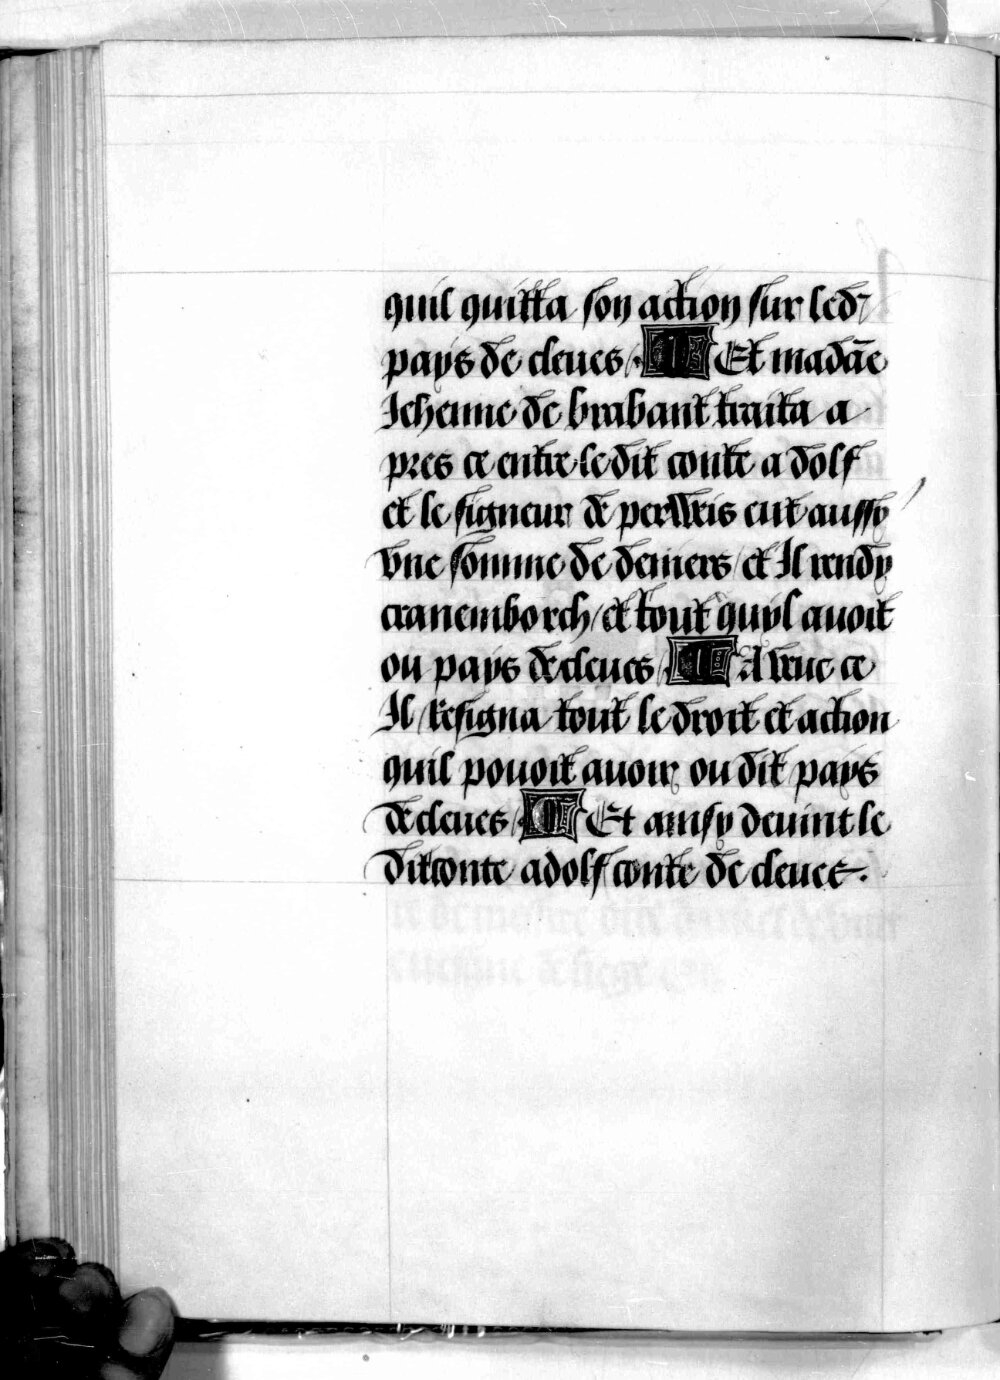 quil quitta son action sur led
pays de cleues / Et madāe
Jehenne de brabant traita a
pres ce entre le dit conte adolf
et le signeur de perweis eut aussy
vne somme de deniers / et Il rendy
cranemborch / et tout quyl auoit
ou pays de cleues / Avoec ce
Il resigna tout le droit et action
quil pouoit auoir ou dit pays
de cleues / Et ainsy deuint le
dit conte adolf conte de cleues.